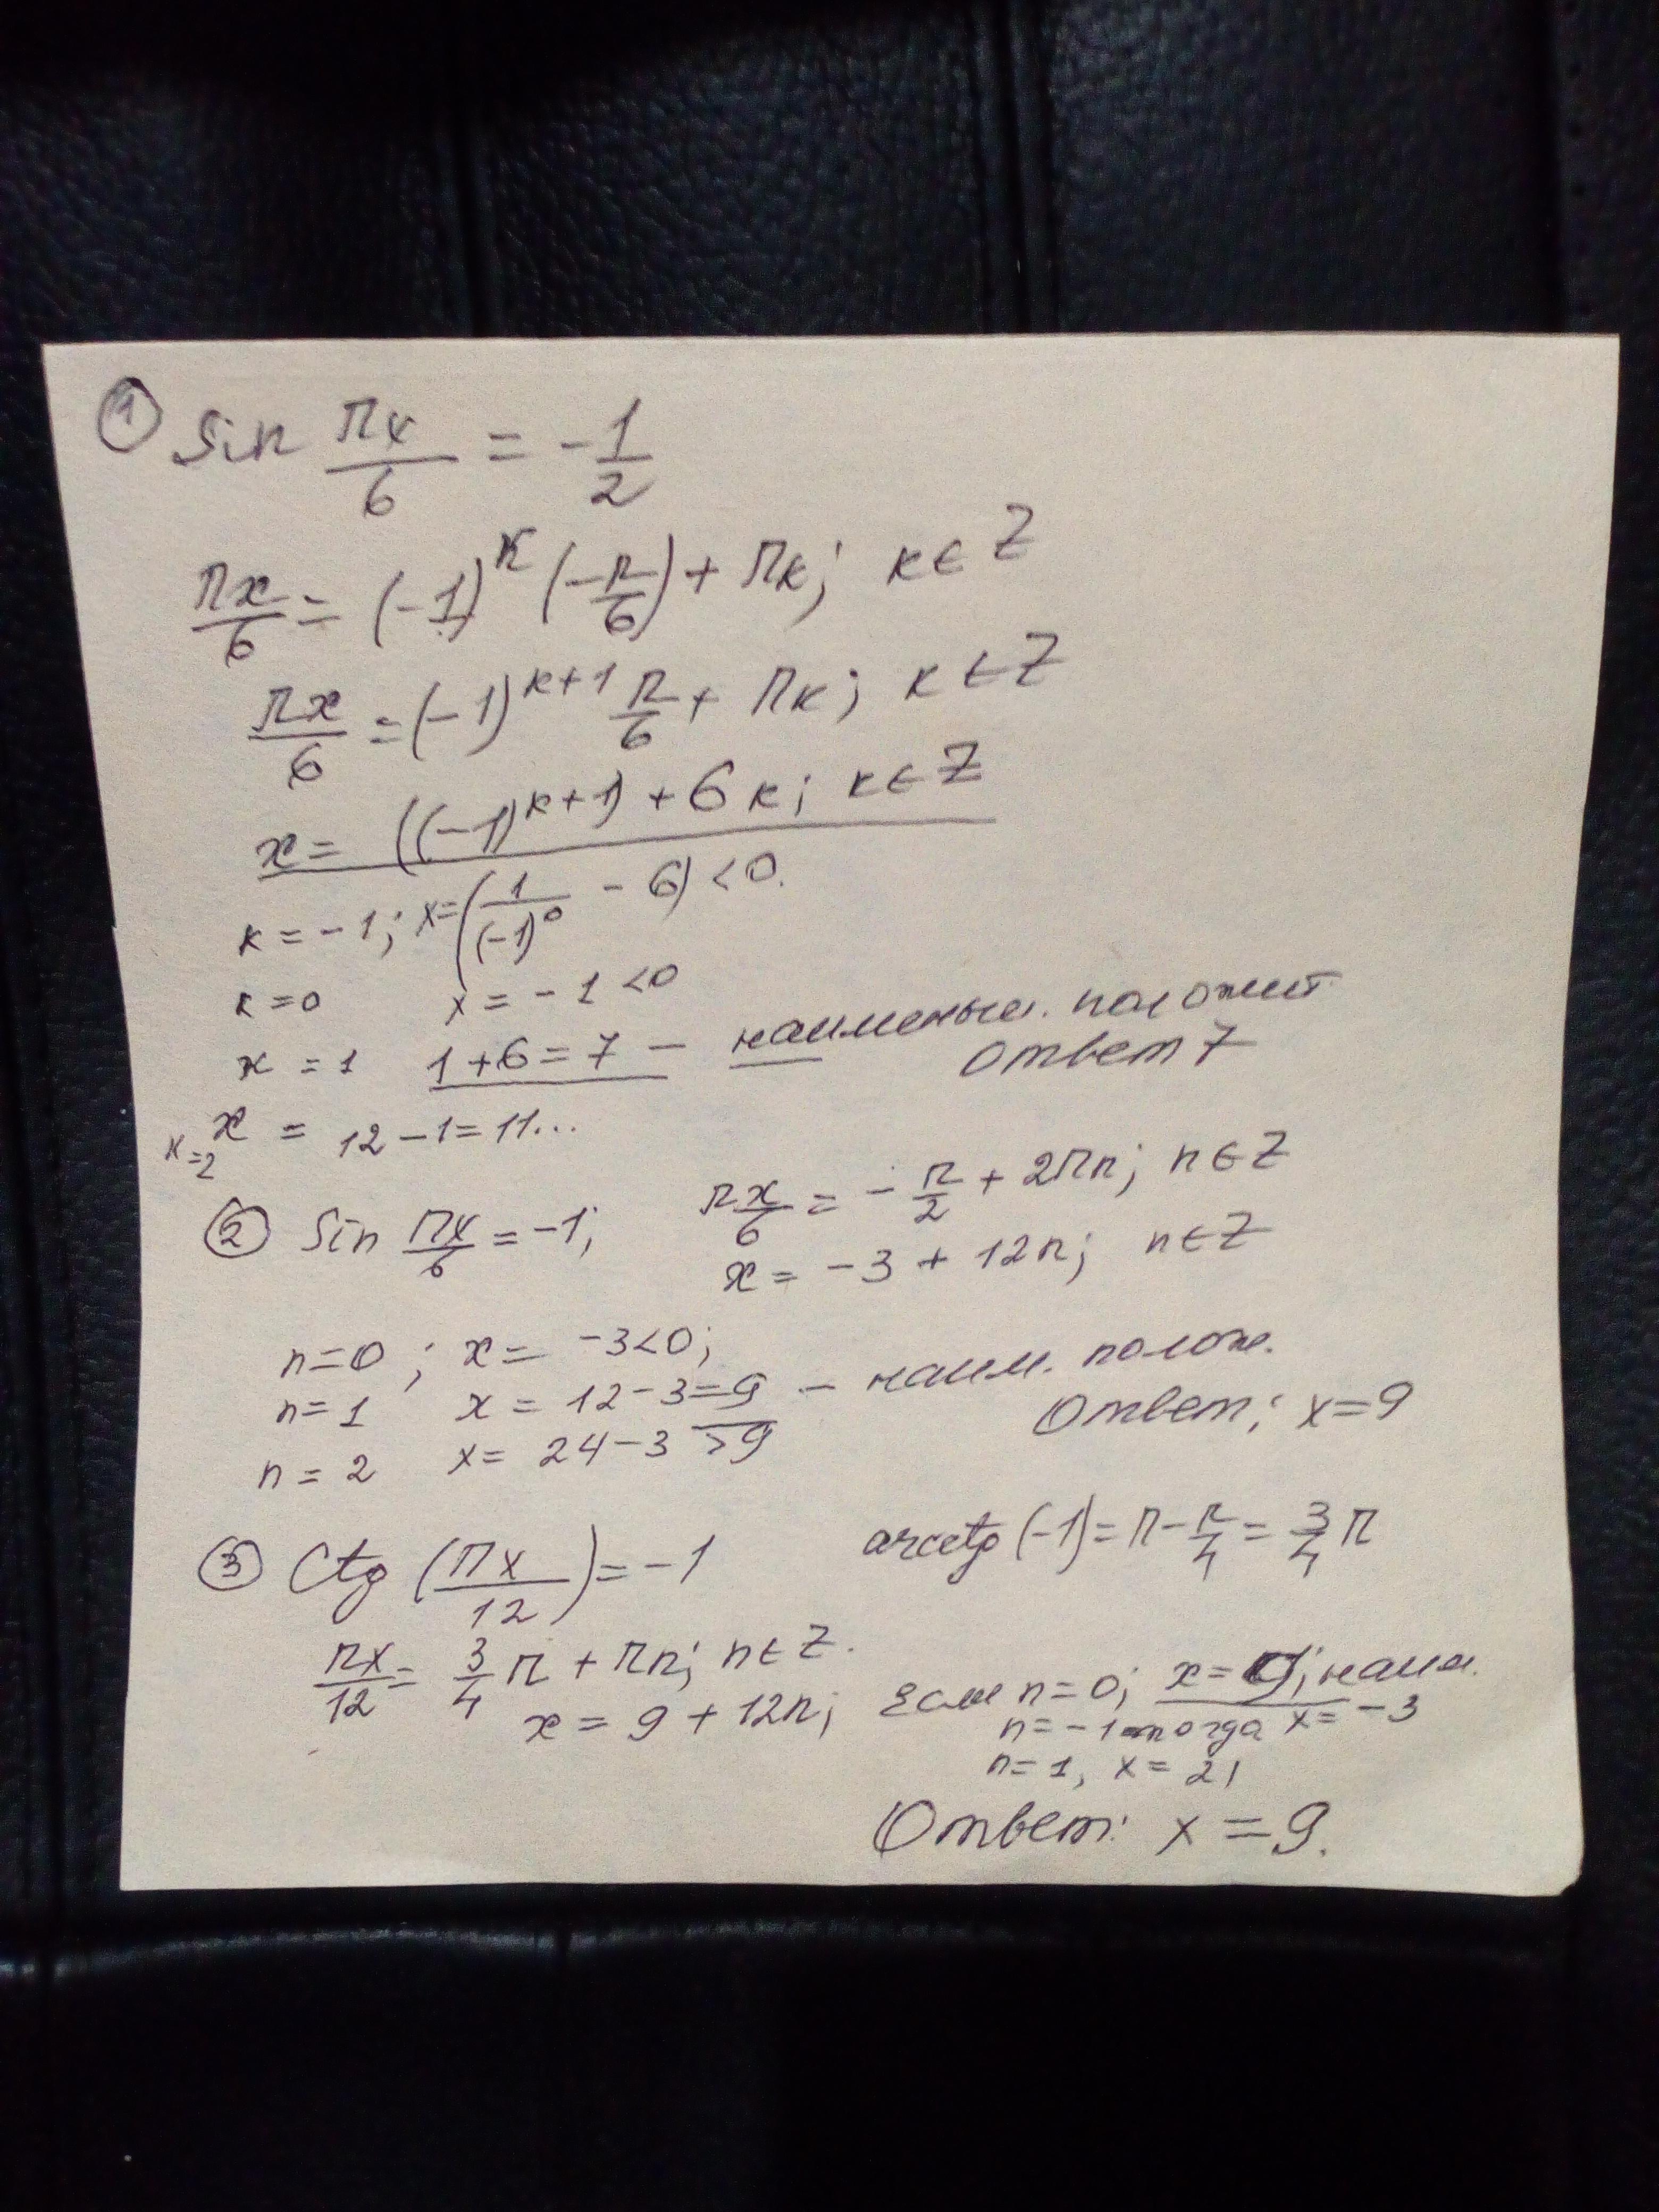 ① Sin πx/6 = -1/2
πx/6 = (-1)^к (-π/6) + πк; к ∈ Z
πx/6 = (-1)^(к+1) π/6 + πк; к ∈ Z
x = ((-1)^(к+1)) + 6к; к ∈ Z
к = -1; x = (1/(-1)^0 - 6) < 0.
к = 0 x = -1 < 0
к = 1 1 + 6 = 7 — наименьш. положит.
Ответ 7
к=2 x = 12 - 1 = 11...
② Sin πx/6 = -1; πx/6 = -π/2 + 2πn; n ∈ Z
x = -3 + 12n; n ∈ Z
n = 0; x = -3 < 0;
n = 1 x = 12 - 3 = 9 — наим. полож.
n = 2 x = 24 - 3 > 9
Ответ; x = 9
③ Ctg (πx/12) = -1 arcctg (-1) = π - π/4 = 3/4 π
πx/12 = 3/4 π + πn; n ∈ Z.
x = 9 + 12n; Если n = 0; x = 9; наим.
n = -1 тогда x = -3
n = 1, x = 21
Ответ: x = 9.